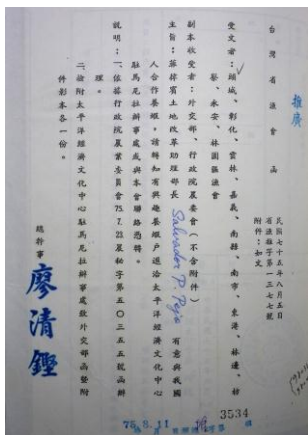 推廣
台灣省漁會函
民國七十五年八月五日
省漁推字第一三七七號
附件：如文
受文者：頭城、彰化、雲林、嘉義、南縣、南市、東港、林邊、枋
寮、永安、林園區漁會
副本收受者：外交部、行政院農委會（不含附件）
主旨：菲律賓土地改革助理部長Salvador P. Pejo有意與我國
人合作養蝦，請轉知有興趣養蝦戶逕洽太平洋經濟文化中心
駐馬尼拉辦事處或與本會聯絡憑轉。
說明：一依據行政院農業委員會75.7.23農秘字第五〇三五五號函辦
理。
二檢附太平洋經濟文化中心駐馬尼拉辦事處致外交部函暨附
件影本各一份。
總幹事 廖清鏗
75.8.11
3534